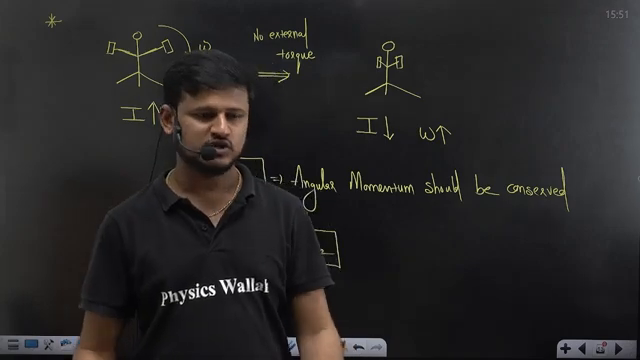 15:51
*
ω
No external
torque
⇒
I ↑
I ↓ ω ↑
⇒ Angular Momentum should be conserved
2
Physics Wallah